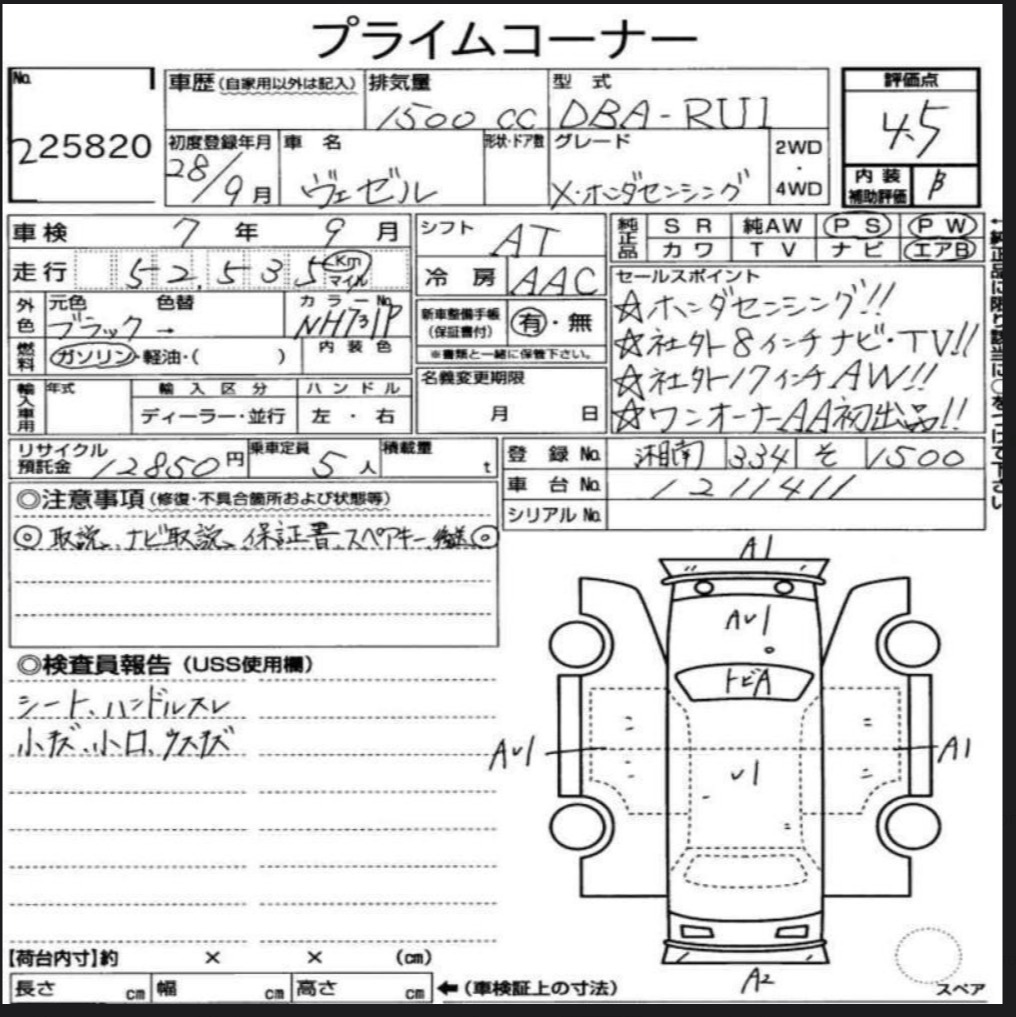 プライムコーナー
No.
225820
車歴 (自家用以外は記入)
排気量
1500 CC
型 式
DBA-RU1
評価点
4.5
初度登録年月
28/9月
車 名
ヴェゼル
形状・ドア数
グレード
X・ホンダセンシング
2WD
・
4WD
内 装
補助評価
β
車検 7 年 9 月
走行 52,535 Km
マイル
外色
元色
ブラック →
色替
カラーNo.
NH731P
燃料
ガソリン・軽油・( )
内 装 色
輸入車用
年式
輸 入 区 分
ディーラー・並行
ハ ン ド ル
左 ・ 右
シフト AT
冷 房 AAC
新車整備手帳
(保証書付)
有・無
※書類と一緒に保管下さい。
名義変更期限
月 日
純正品
S R 純AW P S P W
カワ T V ナビ エアB
セールスポイント
☆ホンダセンシング!!
☆社外8インチナビ・TV!!
☆社外17インチAW!!
☆ワンオーナーAA初出品!!
←純正品に限り該当に○をつけて下さい
リサイクル
預託金 12850円
乗車定員
5人
積載量
t
登 録 No. 湘南 334 そ 1500
車 台 No. 1211411
シリアル No.
◎注意事項 (修復・不具合箇所および状態等)
◎取説、ナビ取説、保証書、スペアキー、後送◎
◎検査員報告 (USS使用欄)
シート、ハンドルスレ
小キズ、小凹、ウスキズ
A1
AU1
トビA
AU1
A1
U1
A2
【荷台内寸】約 × × (cm)
長さ cm 幅 cm 高さ cm ←(車検証上の寸法)
スペア